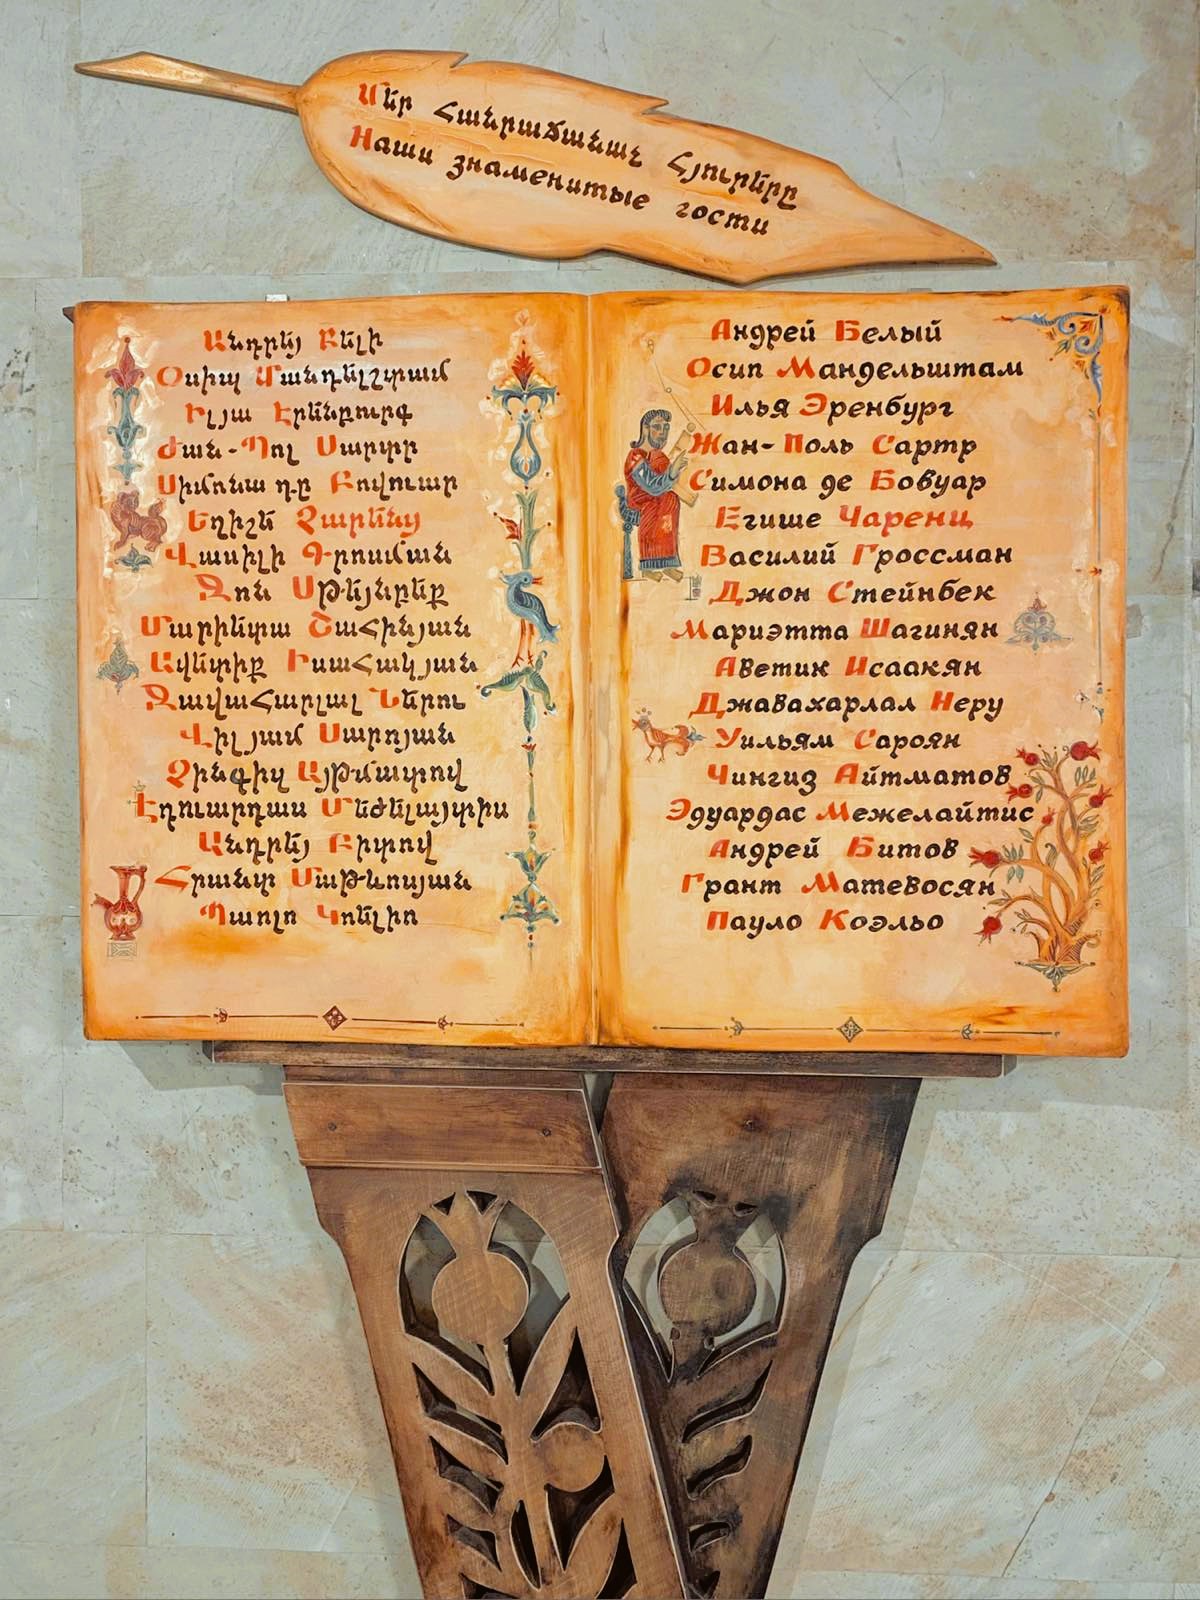 Մեր Հանրաճանաչ Հյուրերը
Наши знаменитые гости
Անդրեյ Բելի
Օսիպ Մանդելշտամ
Իլյա Էրենբուրգ
Ժան-Պոլ Սարտր
Սիմոնա դը Բովուար
Եղիշե Չարենց
Վասիլի Գրոսման
Ջոն Սթեյնբեք
Մարիետա Շահինյան
Ավետիք Իսահակյան
Ջավահարլալ Ներու
Վիլյամ Սարոյան
Չինգիզ Այթմատով
Էդուարդաս Մեժելայտիս
Անդրեյ Բիտով
Հրանտ Մաթևոսյան
Պաոլո Կոելիո
Андрей Белый
Осип Мандельштам
Илья Эренбург
Жан-Поль Сартр
Симона де Бовуар
Егише Чаренц
Василий Гроссман
Джон Стейнбек
Мариэтта Шагинян
Аветик Исаакян
Джавахарлал Неру
Уильям Сароян
Чингиз Айтматов
Эдуардас Межелайтис
Андрей Битов
Грант Матевосян
Пауло Коэльо